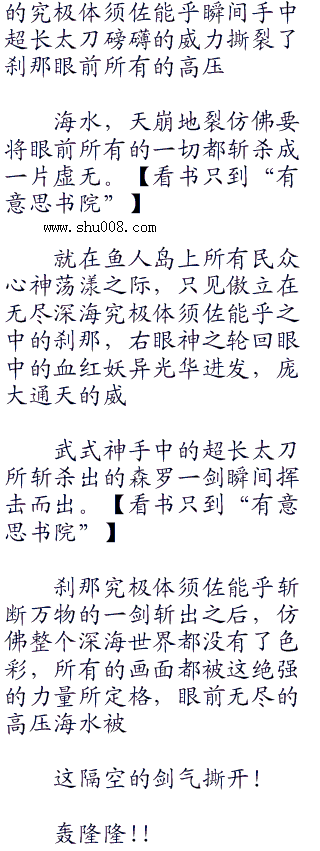 的究极体须佐能乎瞬间手中
超长太刀磅礴的威力撕裂了
刹那眼前所有的高压
海水，天崩地裂仿佛要
将眼前所有的一切都斩杀成
一片虚无。【看书只到“有
意思书院”】
www.shu008.com
就在鱼人岛上所有民众
心神荡漾之际，只见傲立在
无尽深海究极体须佐能乎之
中的刹那，右眼神之轮回眼
中的血红妖异光华迸发，庞
大通天的威
武式神手中的超长太刀
所斩杀出的森罗一剑瞬间挥
击而出。【看书只到“有意
思书院”】
刹那究极体须佐能乎斩
断万物的一剑斩出之后，仿
佛整个深海世界都没有了色
彩，所有的画面都被这绝强
的力量所定格，眼前无尽的
高压海水被
这隔空的剑气撕开！
轰隆隆!!